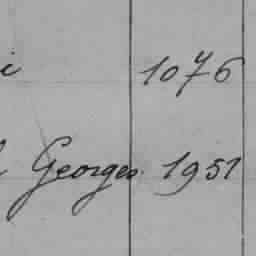 i 1076
Georges 1951